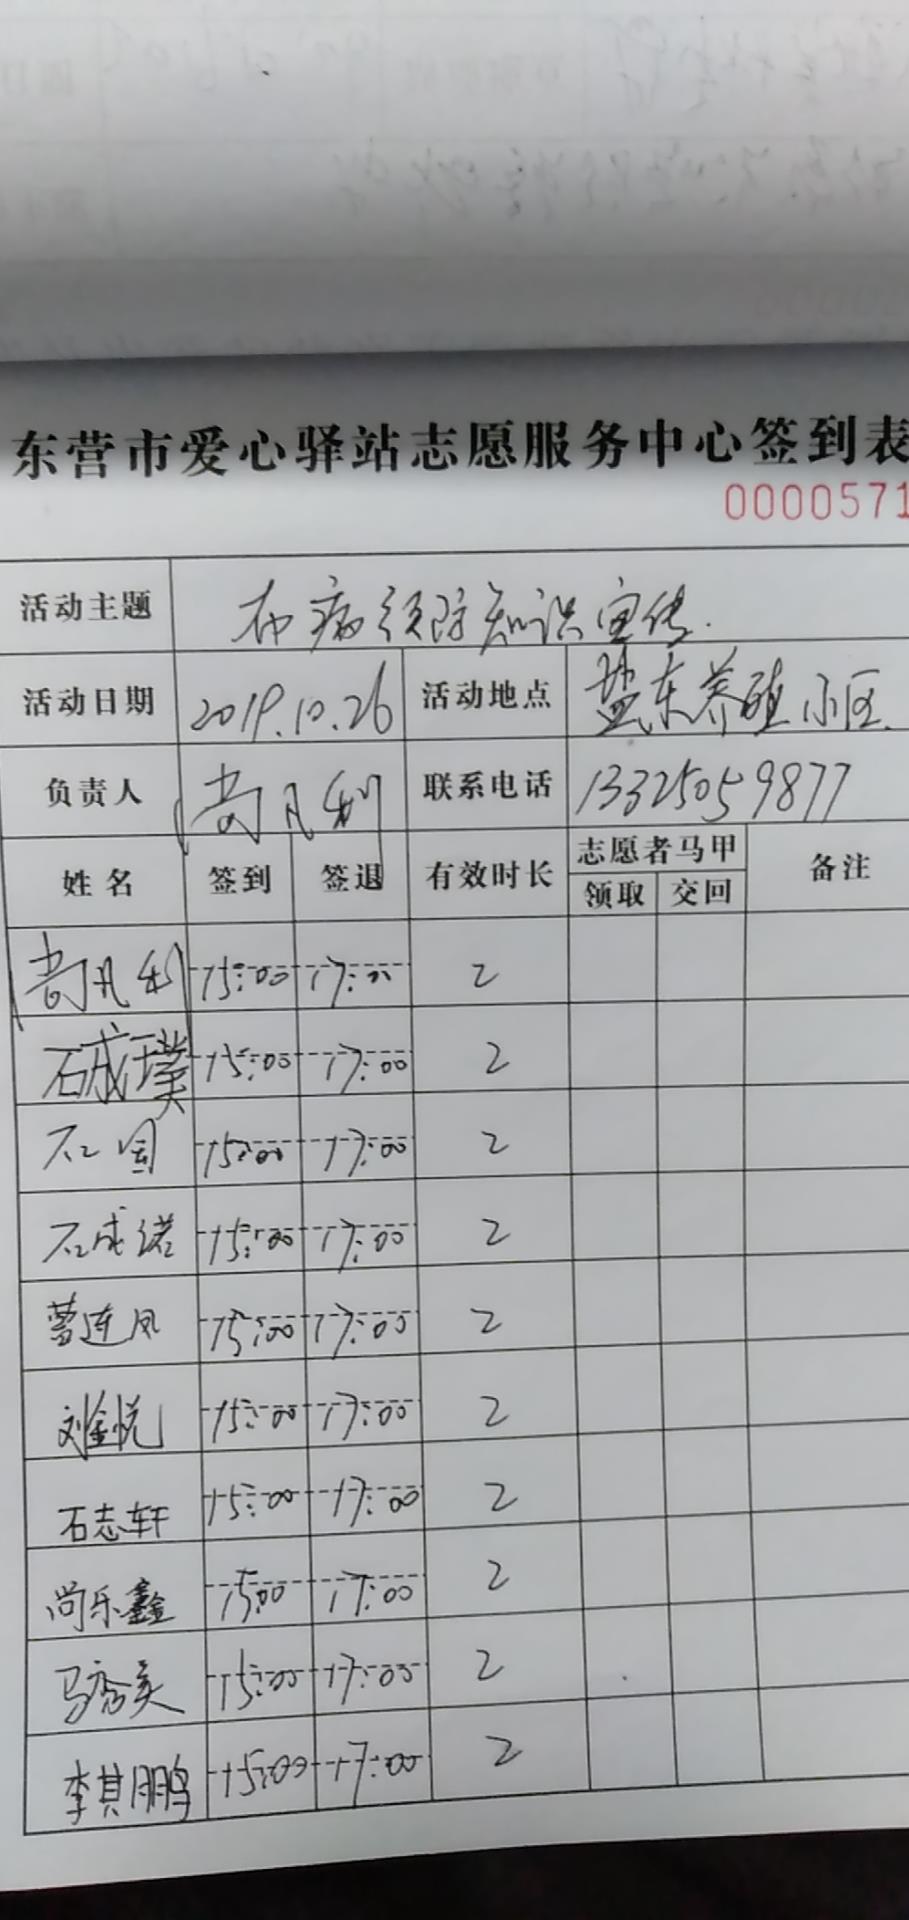 东营市爱心驿站志愿服务中心签到表
0000571
活动主题 布病预防知识宣传.
活动日期 2019.10.26 活动地点 盐东养殖小区
负责人 尚凡利 联系电话 13325059877
姓名 签到 签退 有效时长 志愿者马甲 备注
领取 交回
尚凡利 15:00 17:00 2
石成璞 15:00 17:00 2
石国 15:00 17:00 2
石成诺 15:00 17:00 2
曹连凤 15:00 17:00 2
刘金悦 15:00 17:00 2
石志轩 15:00 17:00 2
尚乐鑫 15:00 17:00 2
马秀美 15:00 17:00 2
李其鹏 15:00 17:00 2